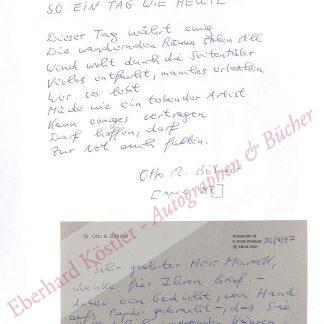 SO EIN TAG WIE HEUTE
Dieser Tag währt ewig
Die wandernden Räume stehen still
Wind weht durch die Seitentäler
Vieles entfacht, manches erloschen
Wer so lebt
Müde wie ein tobender Artist
Kann einiges vertragen
Darf hoffen, darf
Zur Not auch fallen.
Otto A. Böhmer
Eberhard Köstler - Autographen & Bücher
Dr. Otto A. Böhmer
30/4/97
Sehr geehrter Herr Marek,
danke für Ihren Brief. -
Anbei ein Gedicht, von Hand
aufs Papier gebracht, das Sie